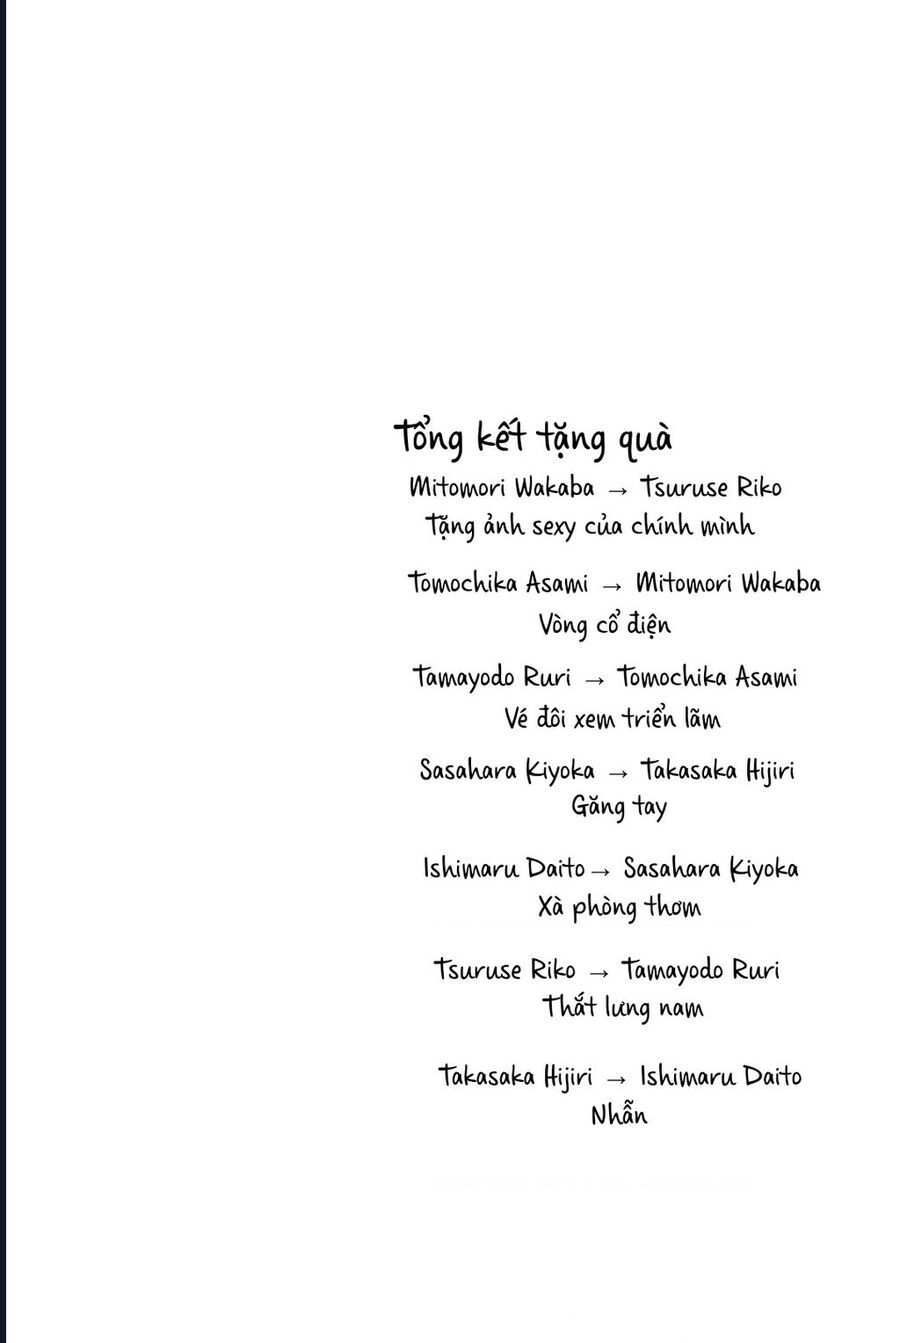 Tổng kết tặng quà
Mitomori Wakaba → Tsuruse Riko
Tặng ảnh sexy của chính mình
Tomochika Asami → Mitomori Wakaba
Vòng cổ điện
Tamayodo Ruri → Tomochika Asami
Vé đôi xem triển lãm
Sasahara Kiyoka → Takasaka Hijiri
Găng tay
Ishimaru Daito → Sasahara Kiyoka
Xà phòng thơm
Tsuruse Riko → Tamayodo Ruri
Thắt lưng nam
Takasaka Hijiri → Ishimaru Daito
Nhẫn